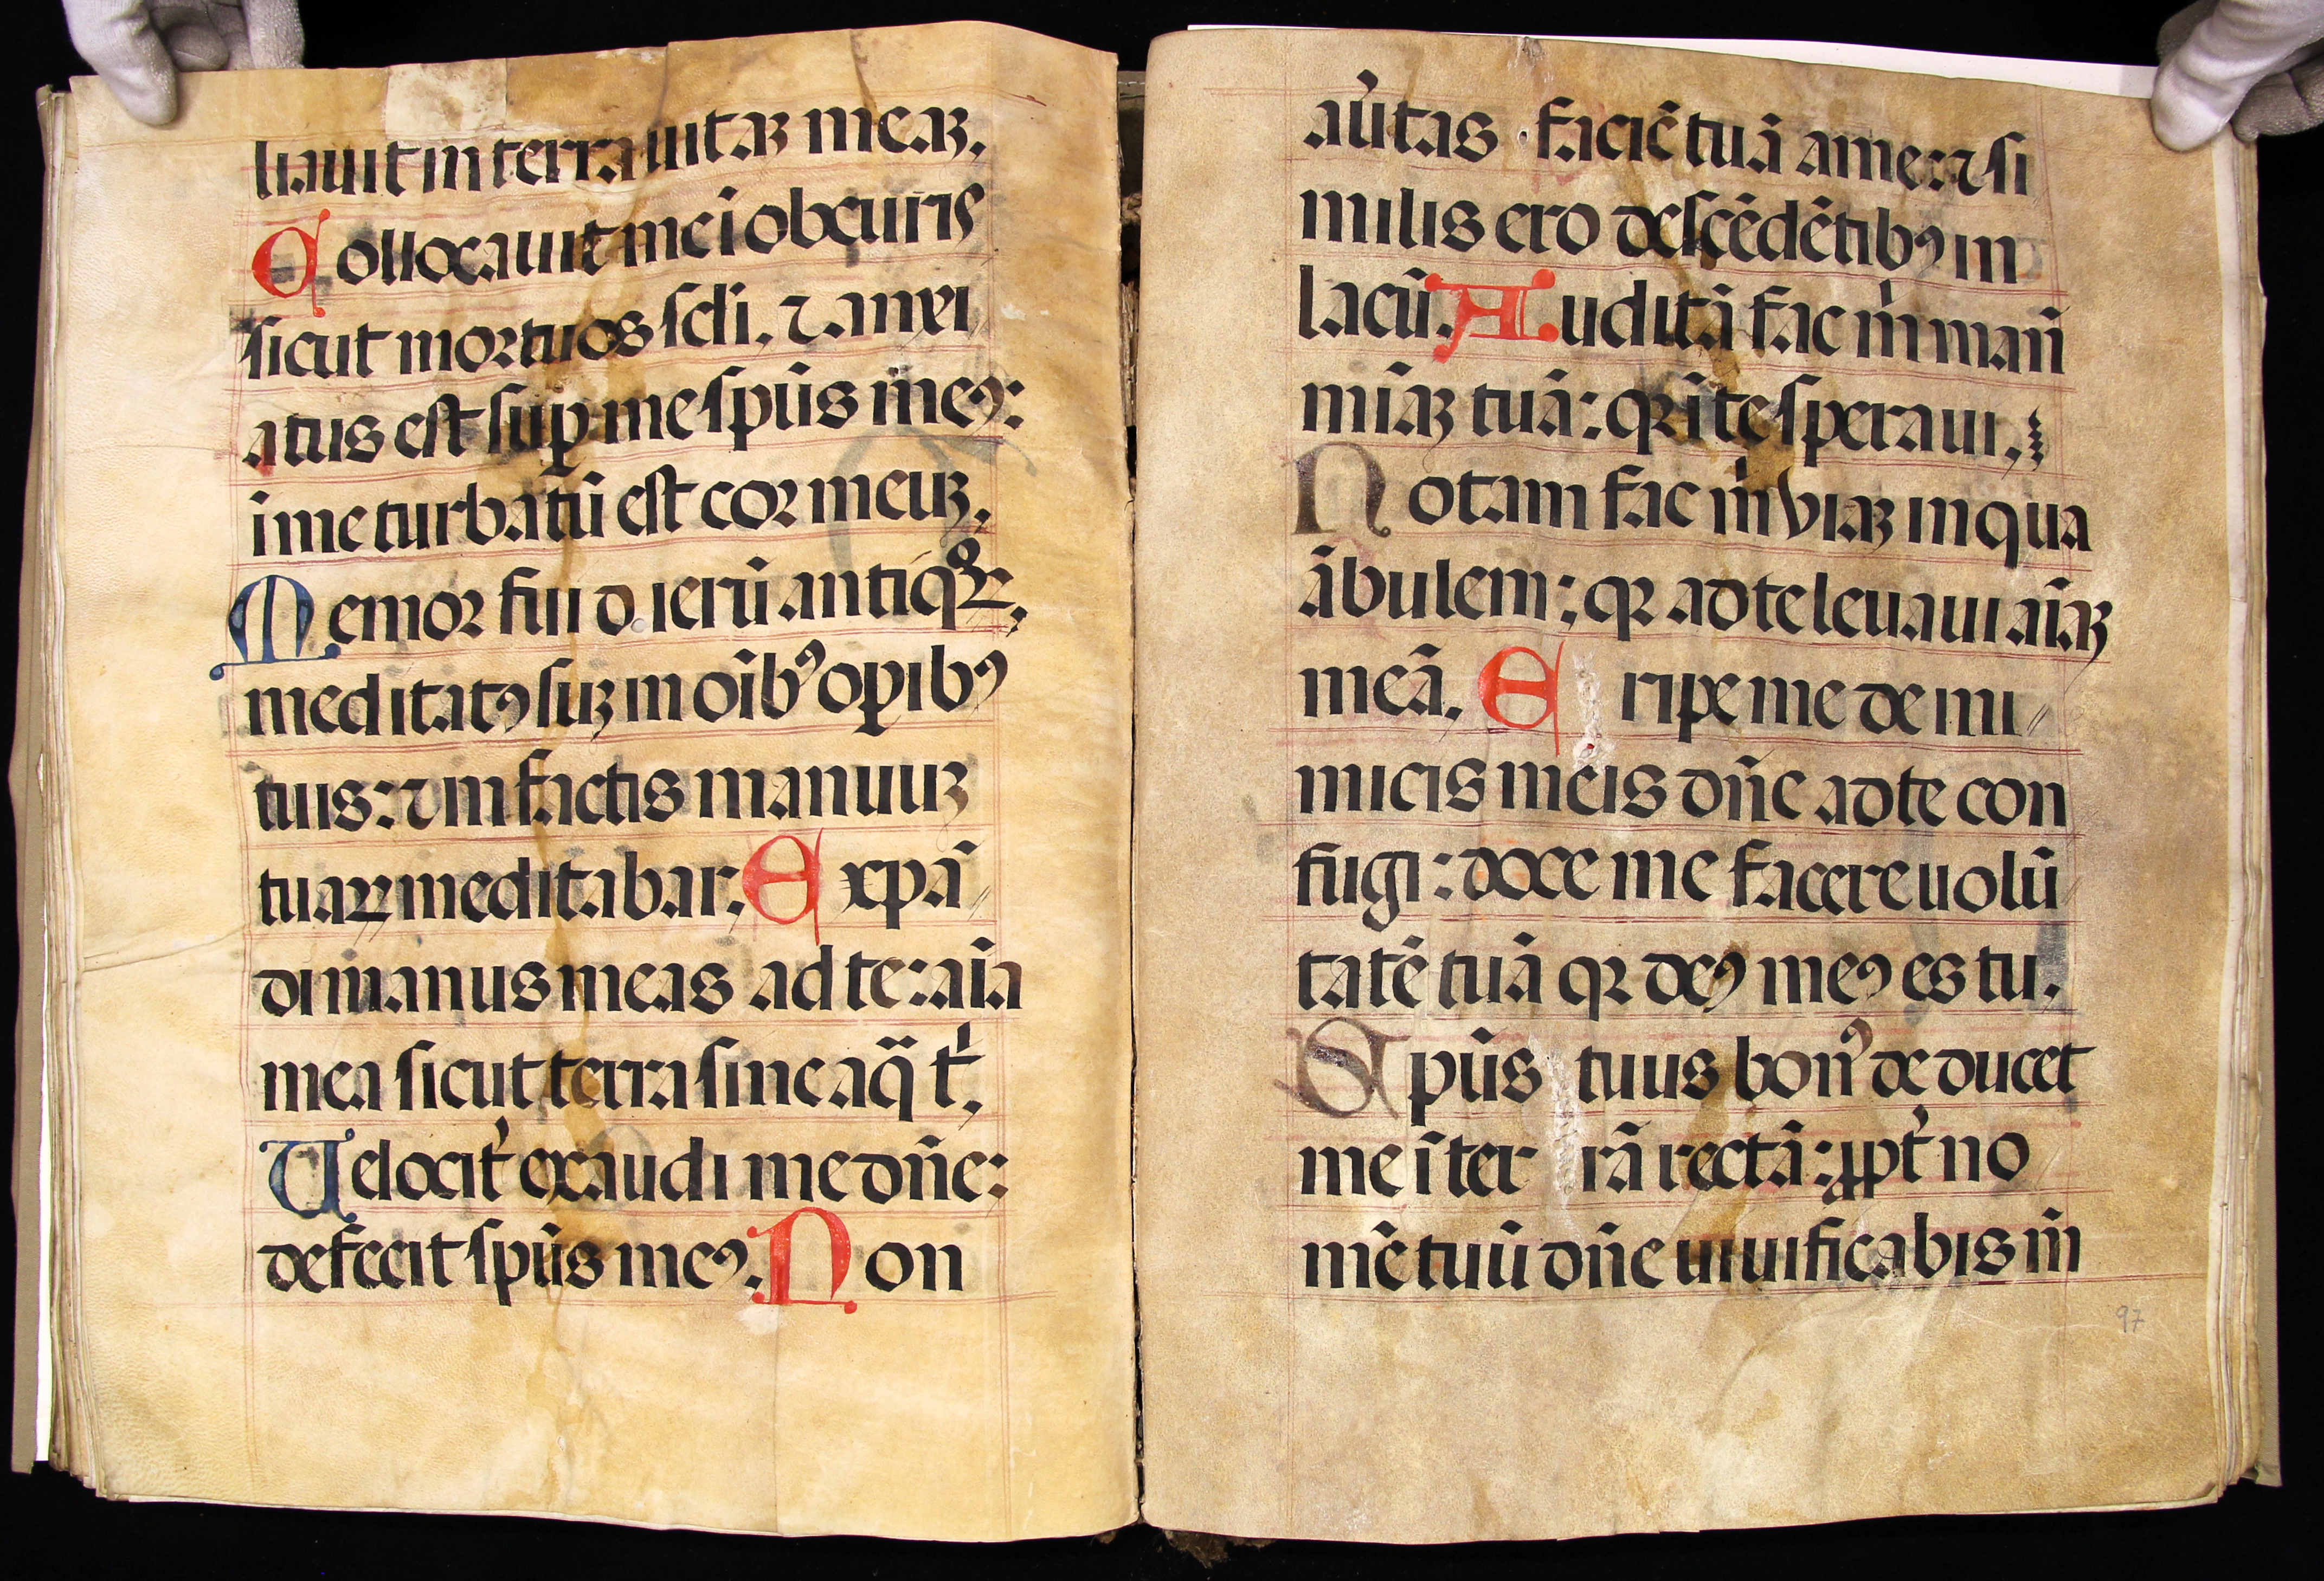 liauit in terra uitaꝫ meaꝫ.
Collocauit me ī obscuris
sicut mortuos scli. ⁊ anxi
atus est suꝑ me spūs meꝰ:
ī me turbatū est cor meuꝫ.
Memor fui dierū antiqͦꝝ.
meditatꝰ suꝫ in oībꝰ oꝑibꝰ
tuis: ⁊ in factis manuuꝫ
tuaꝝ meditabar. Expā
di manus meas ad te: aīa
mea sicut terra sine aq̄ t'.
Velocit' exaudi me dn̄e:
defecit spūs meꝰ. Non
au'tas faciē tuā a me: ⁊ si
milis ero descēdētibꝰ in
lacū. Auditā fac m̍ man̄
mīaꝫ tuā: qꝛ ī te speraui.
Notam fac m̍ viaꝫ in qua
ābulem: qꝛ ad te leuaui aīaꝫ
meā. Eripe me de ini
micis meis dn̄e ad te con
fugi: doce me facere uolū
tatē tuā qꝛ deꝰ meꝰ es tu.
Spūs tuus bonꝰ deducet
me ī terrā rectā: ꝓpt' no
mē tuū dn̄e uiuificabis m̄
97